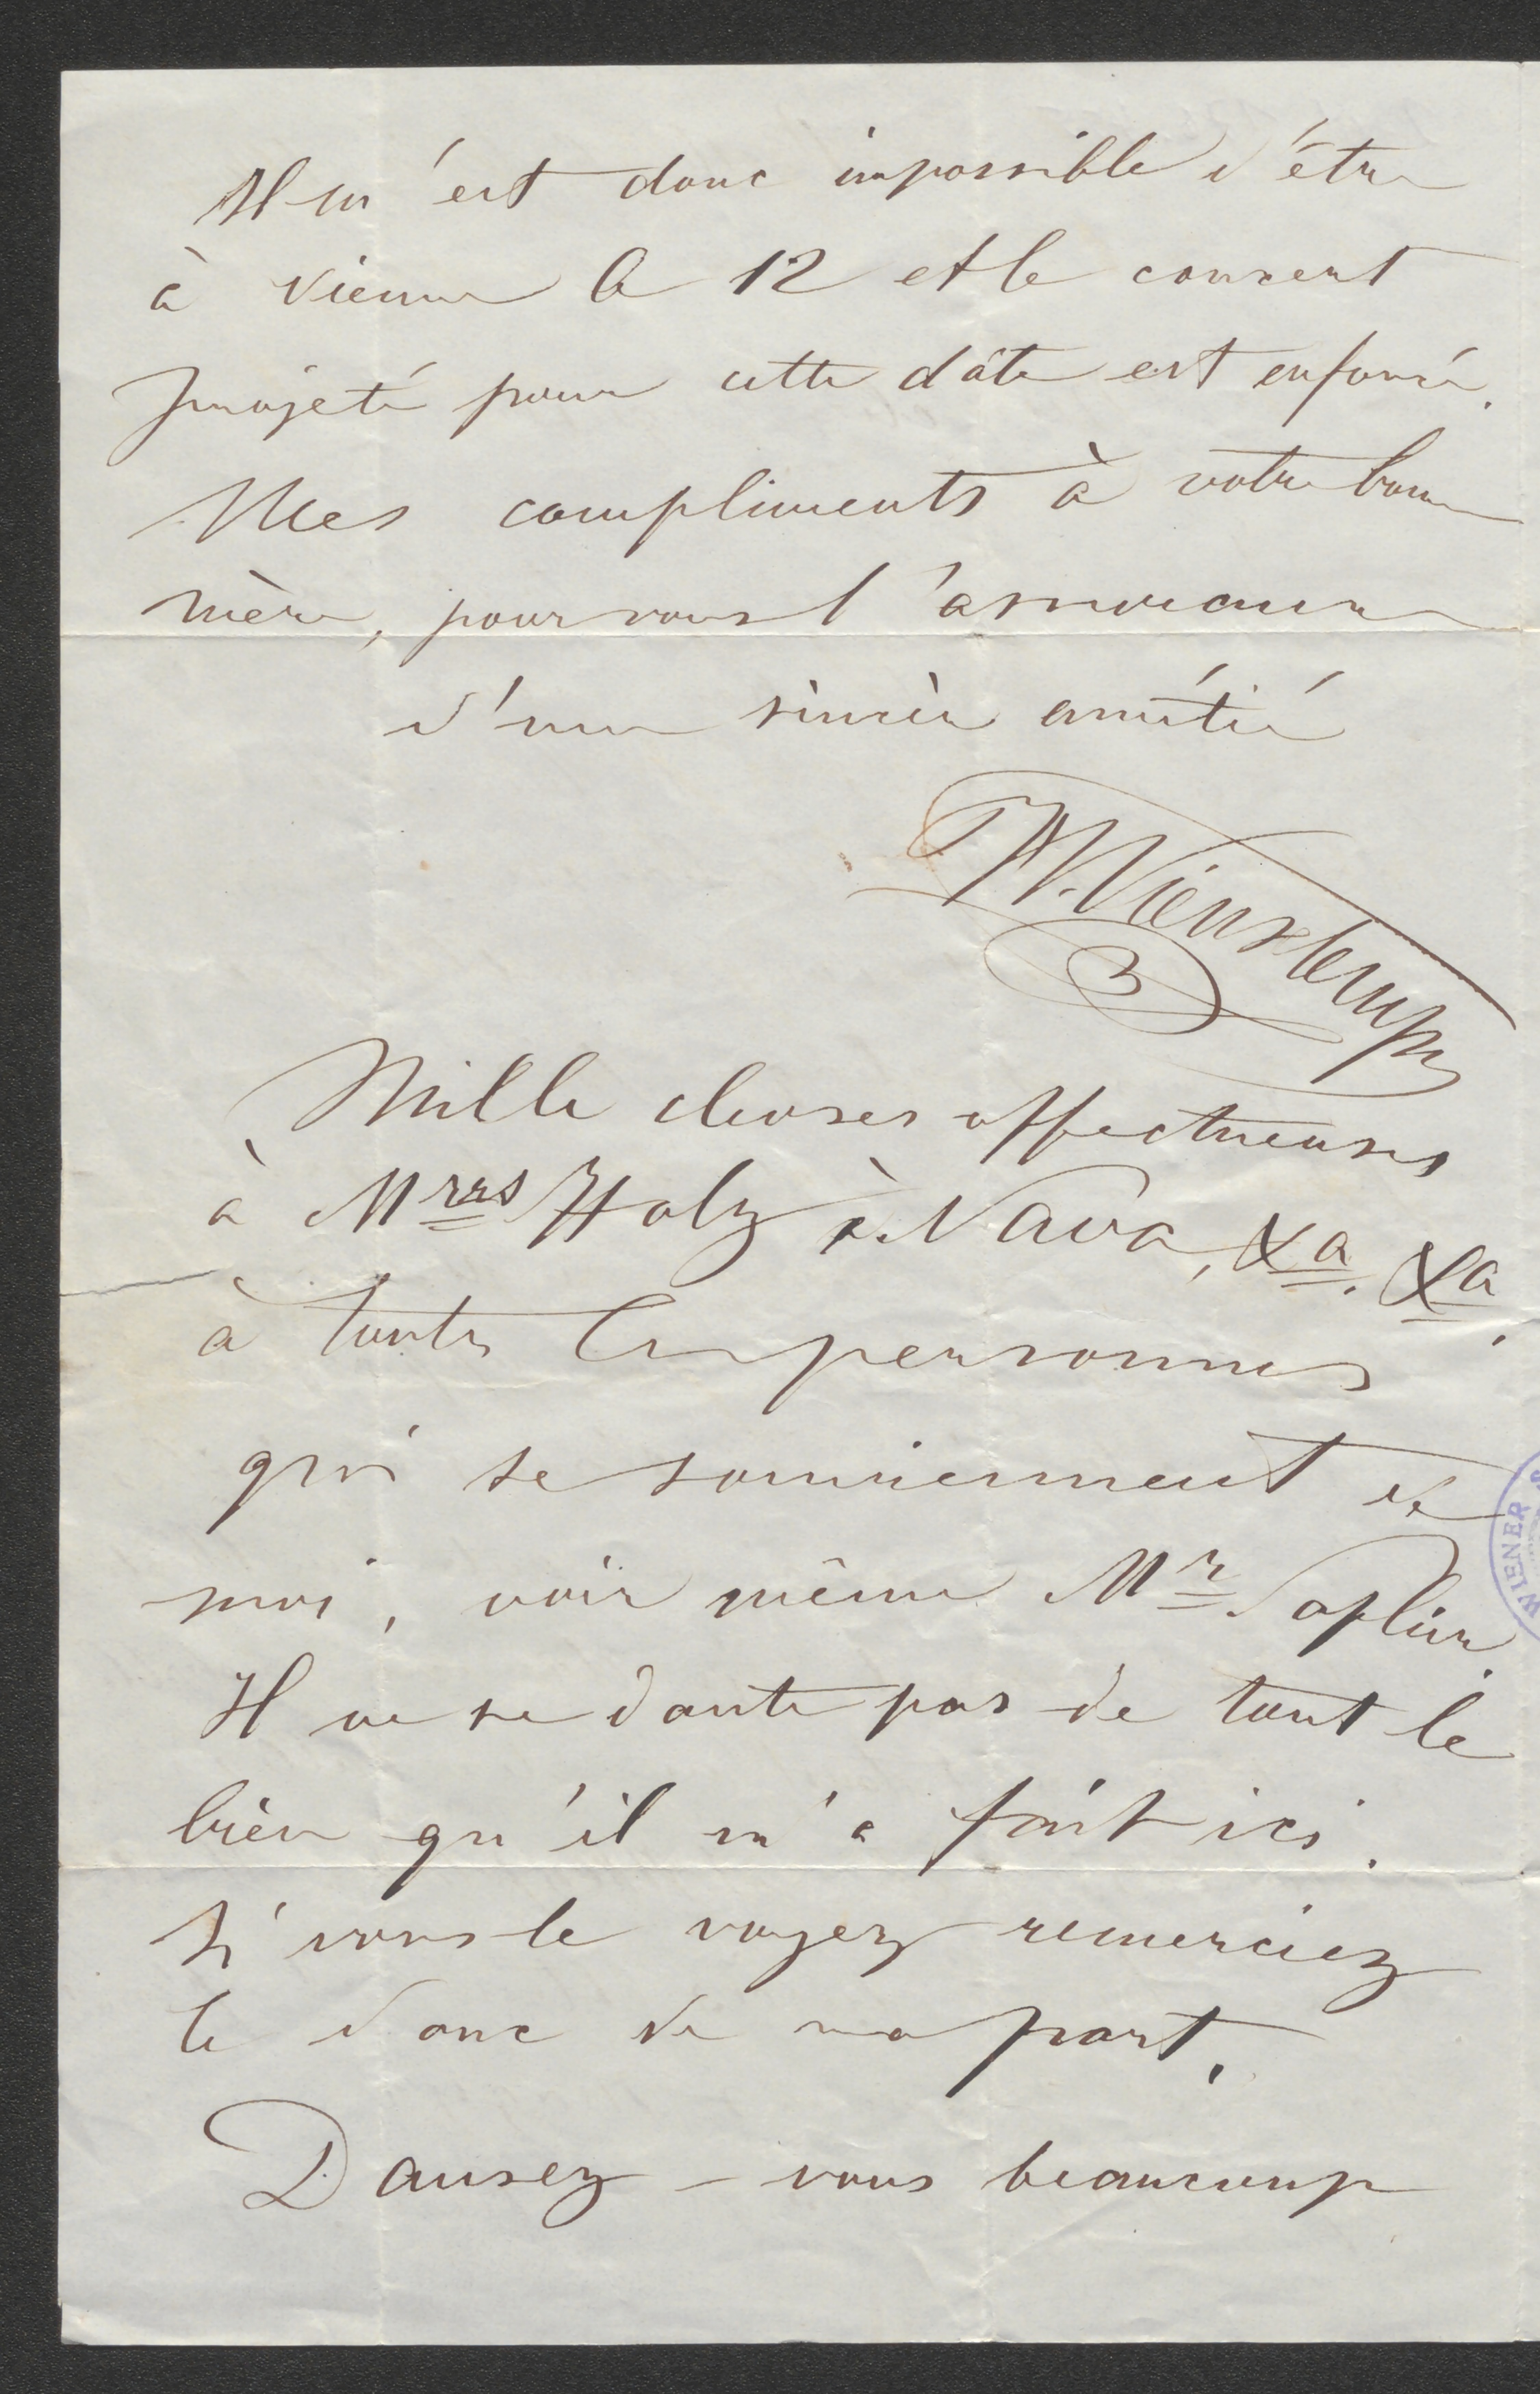 Il m'est donc impossible d'être
à Vienne le 12 et le concert
projeté pour cette dâte est enfoncé.
Mes compliments à votre bonne
mère, pour vous l'assurance
d'une sincère amitié
H. Vieuxtemps
Mille choses affectueuses
à Mrrs Holz à Nava, &a. &a.
à toutes les personnes
qui se souviennent de
moi, voir même Mr Saphir.
Il ne se doute pas de tout le
bien qu'il m'a fait ici.
Si vous le voyez remerciez
le donc de ma part.
Dansez-vous beaucoup
WIENER